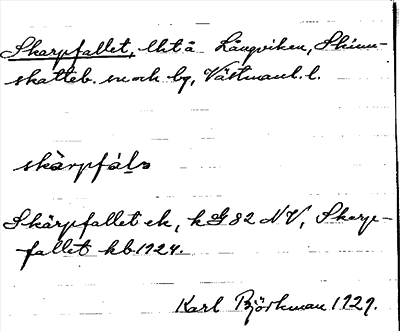 Skarpfallet, lht å Långviken, Skinn-
skatteb. sn och bg, Västmanl. l.
skàrpfáLs
Skärpfallet ek, kG 82 NV, Skarp-
fallet kb 1924.
Karl Björkman 1929.